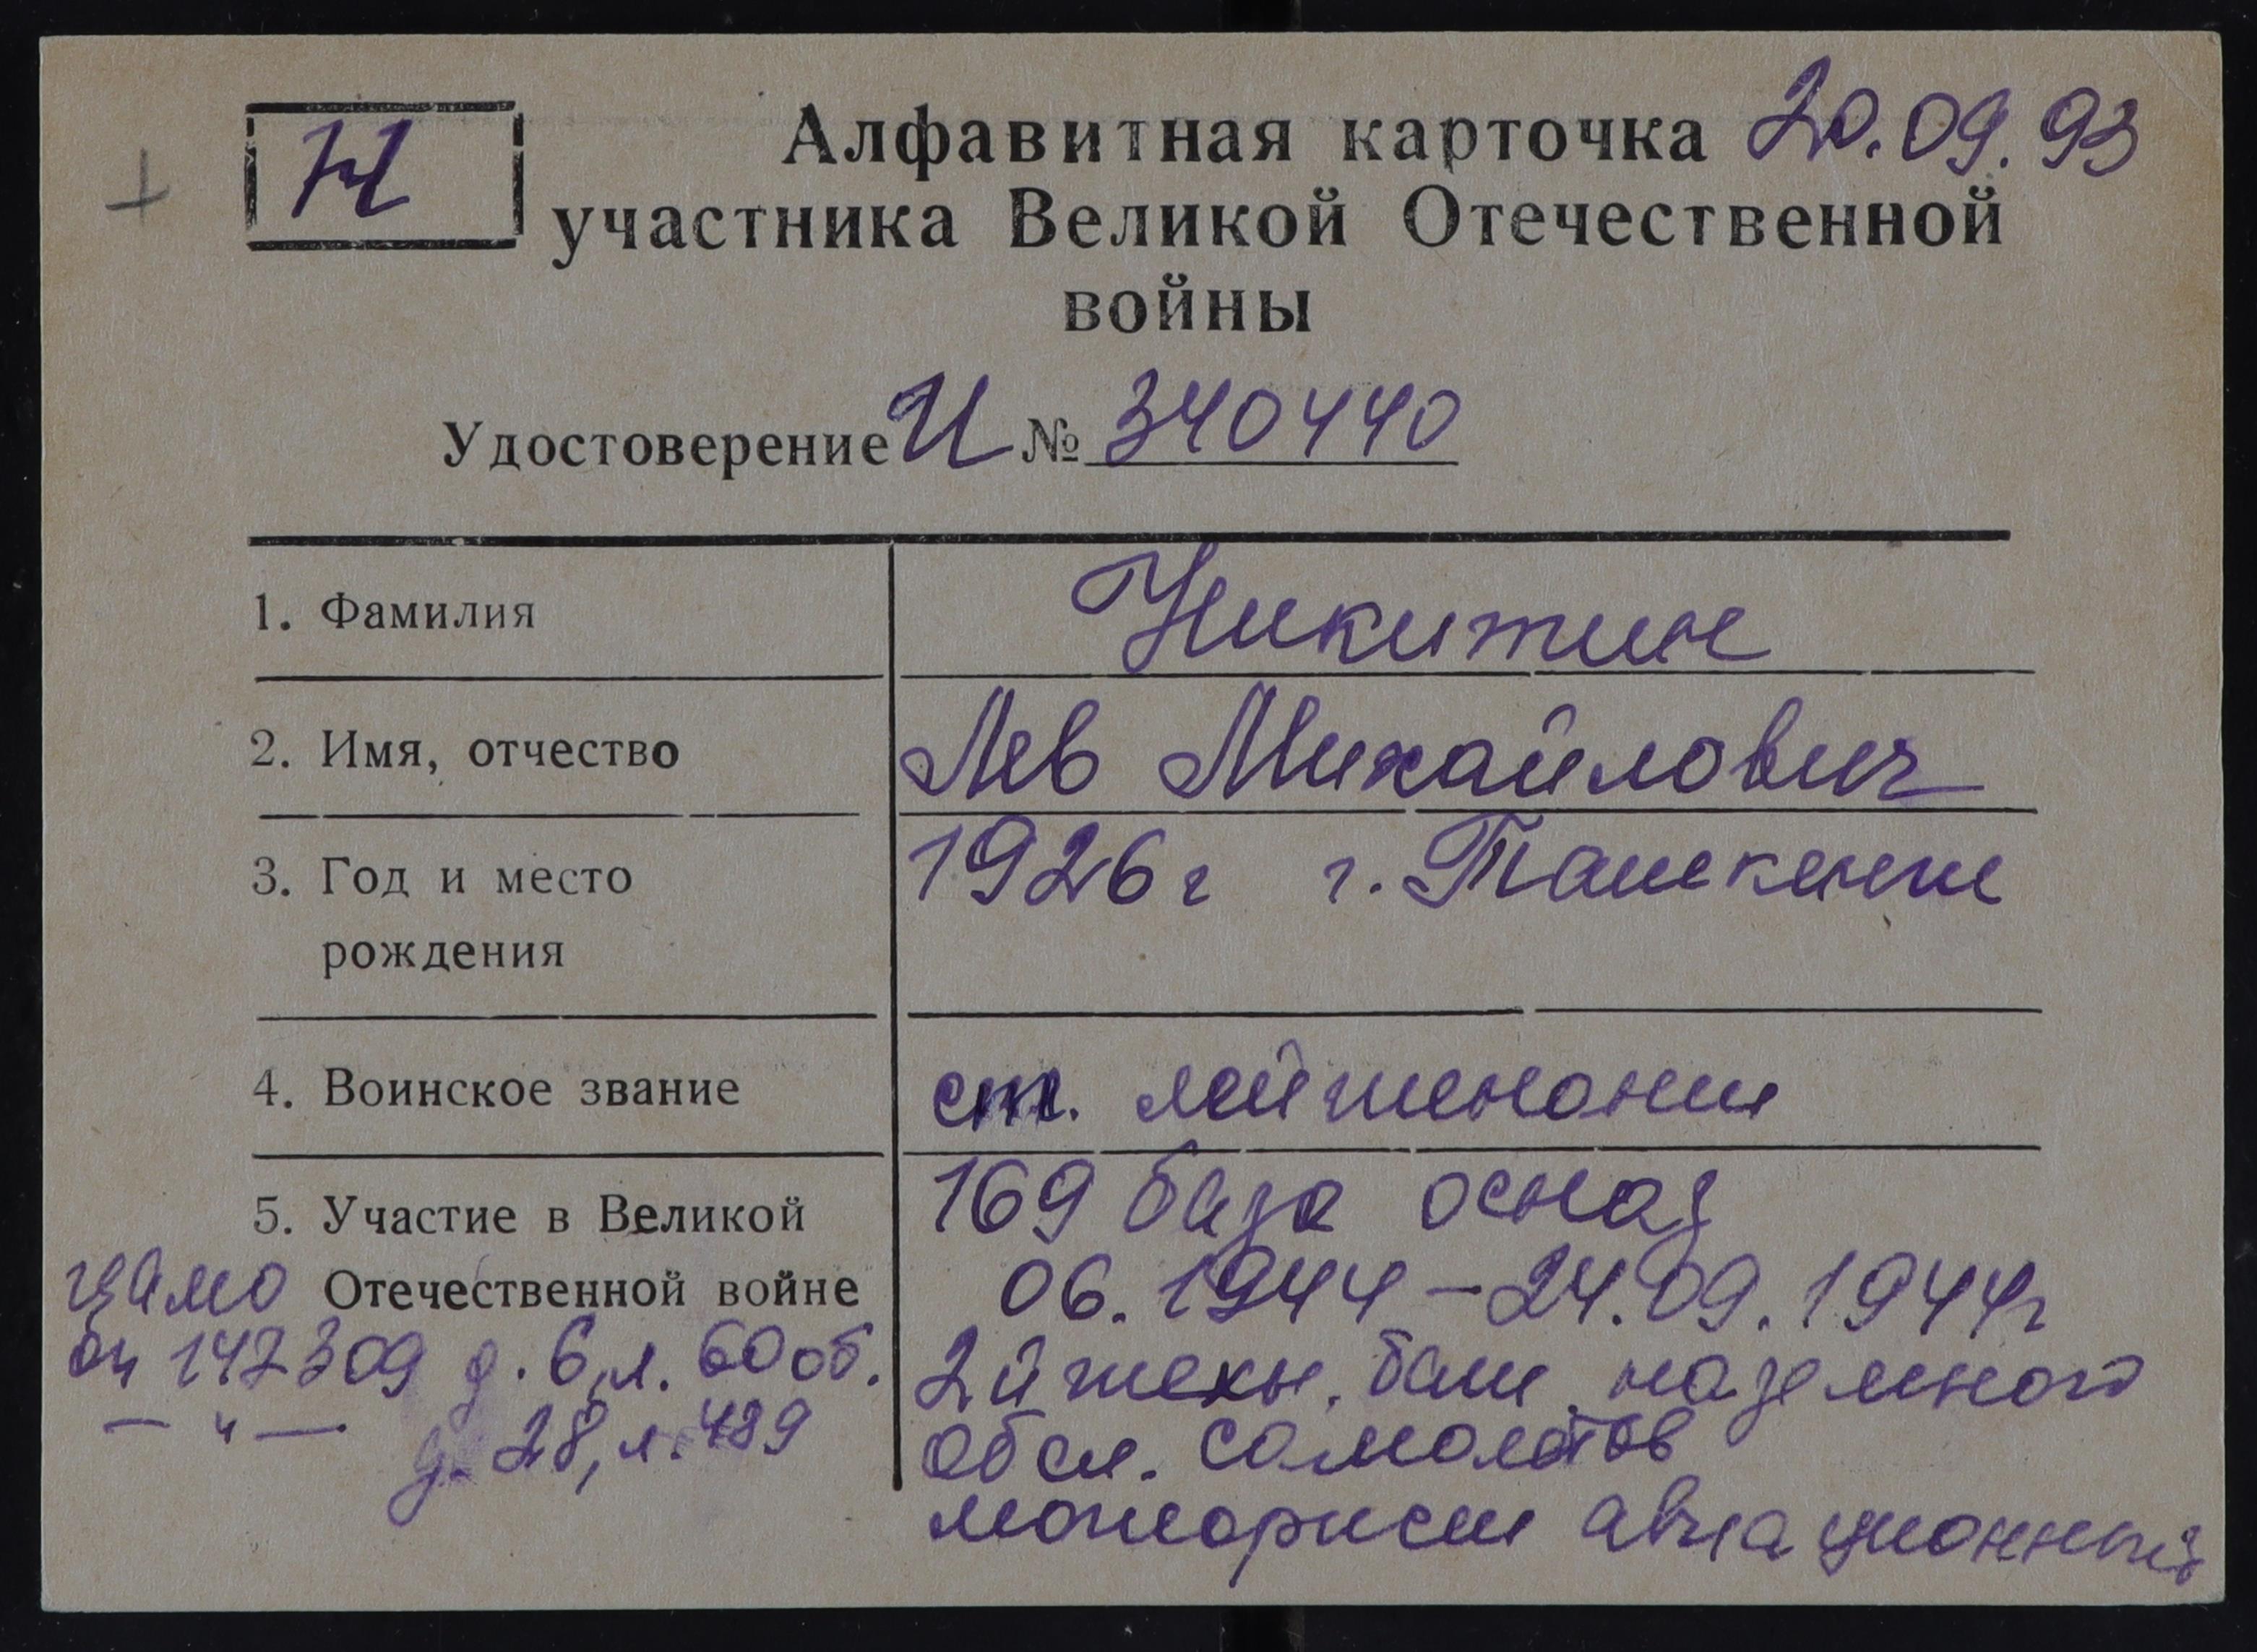 Н
Алфавитная карточка 20.09.93
участника Великой Отечественной
войны
Удостоверение И № 340440
1. Фамилия
Никитин
2. Имя, отчество
Лев Михайлович
3. Год и место
рождения
1926 г г. Ташкент
4. Воинское звание
ст. лейтенант
5. Участие в Великой
Отечественной войне
169 база осназ
06.1944 – 24.09.1944г
2й техн. бат. наземного
обсл. самолётов
моторист авиационный
ЦАМО
оп 147309 д. 6, л. 60 об.
— " — д. 28, л. 489